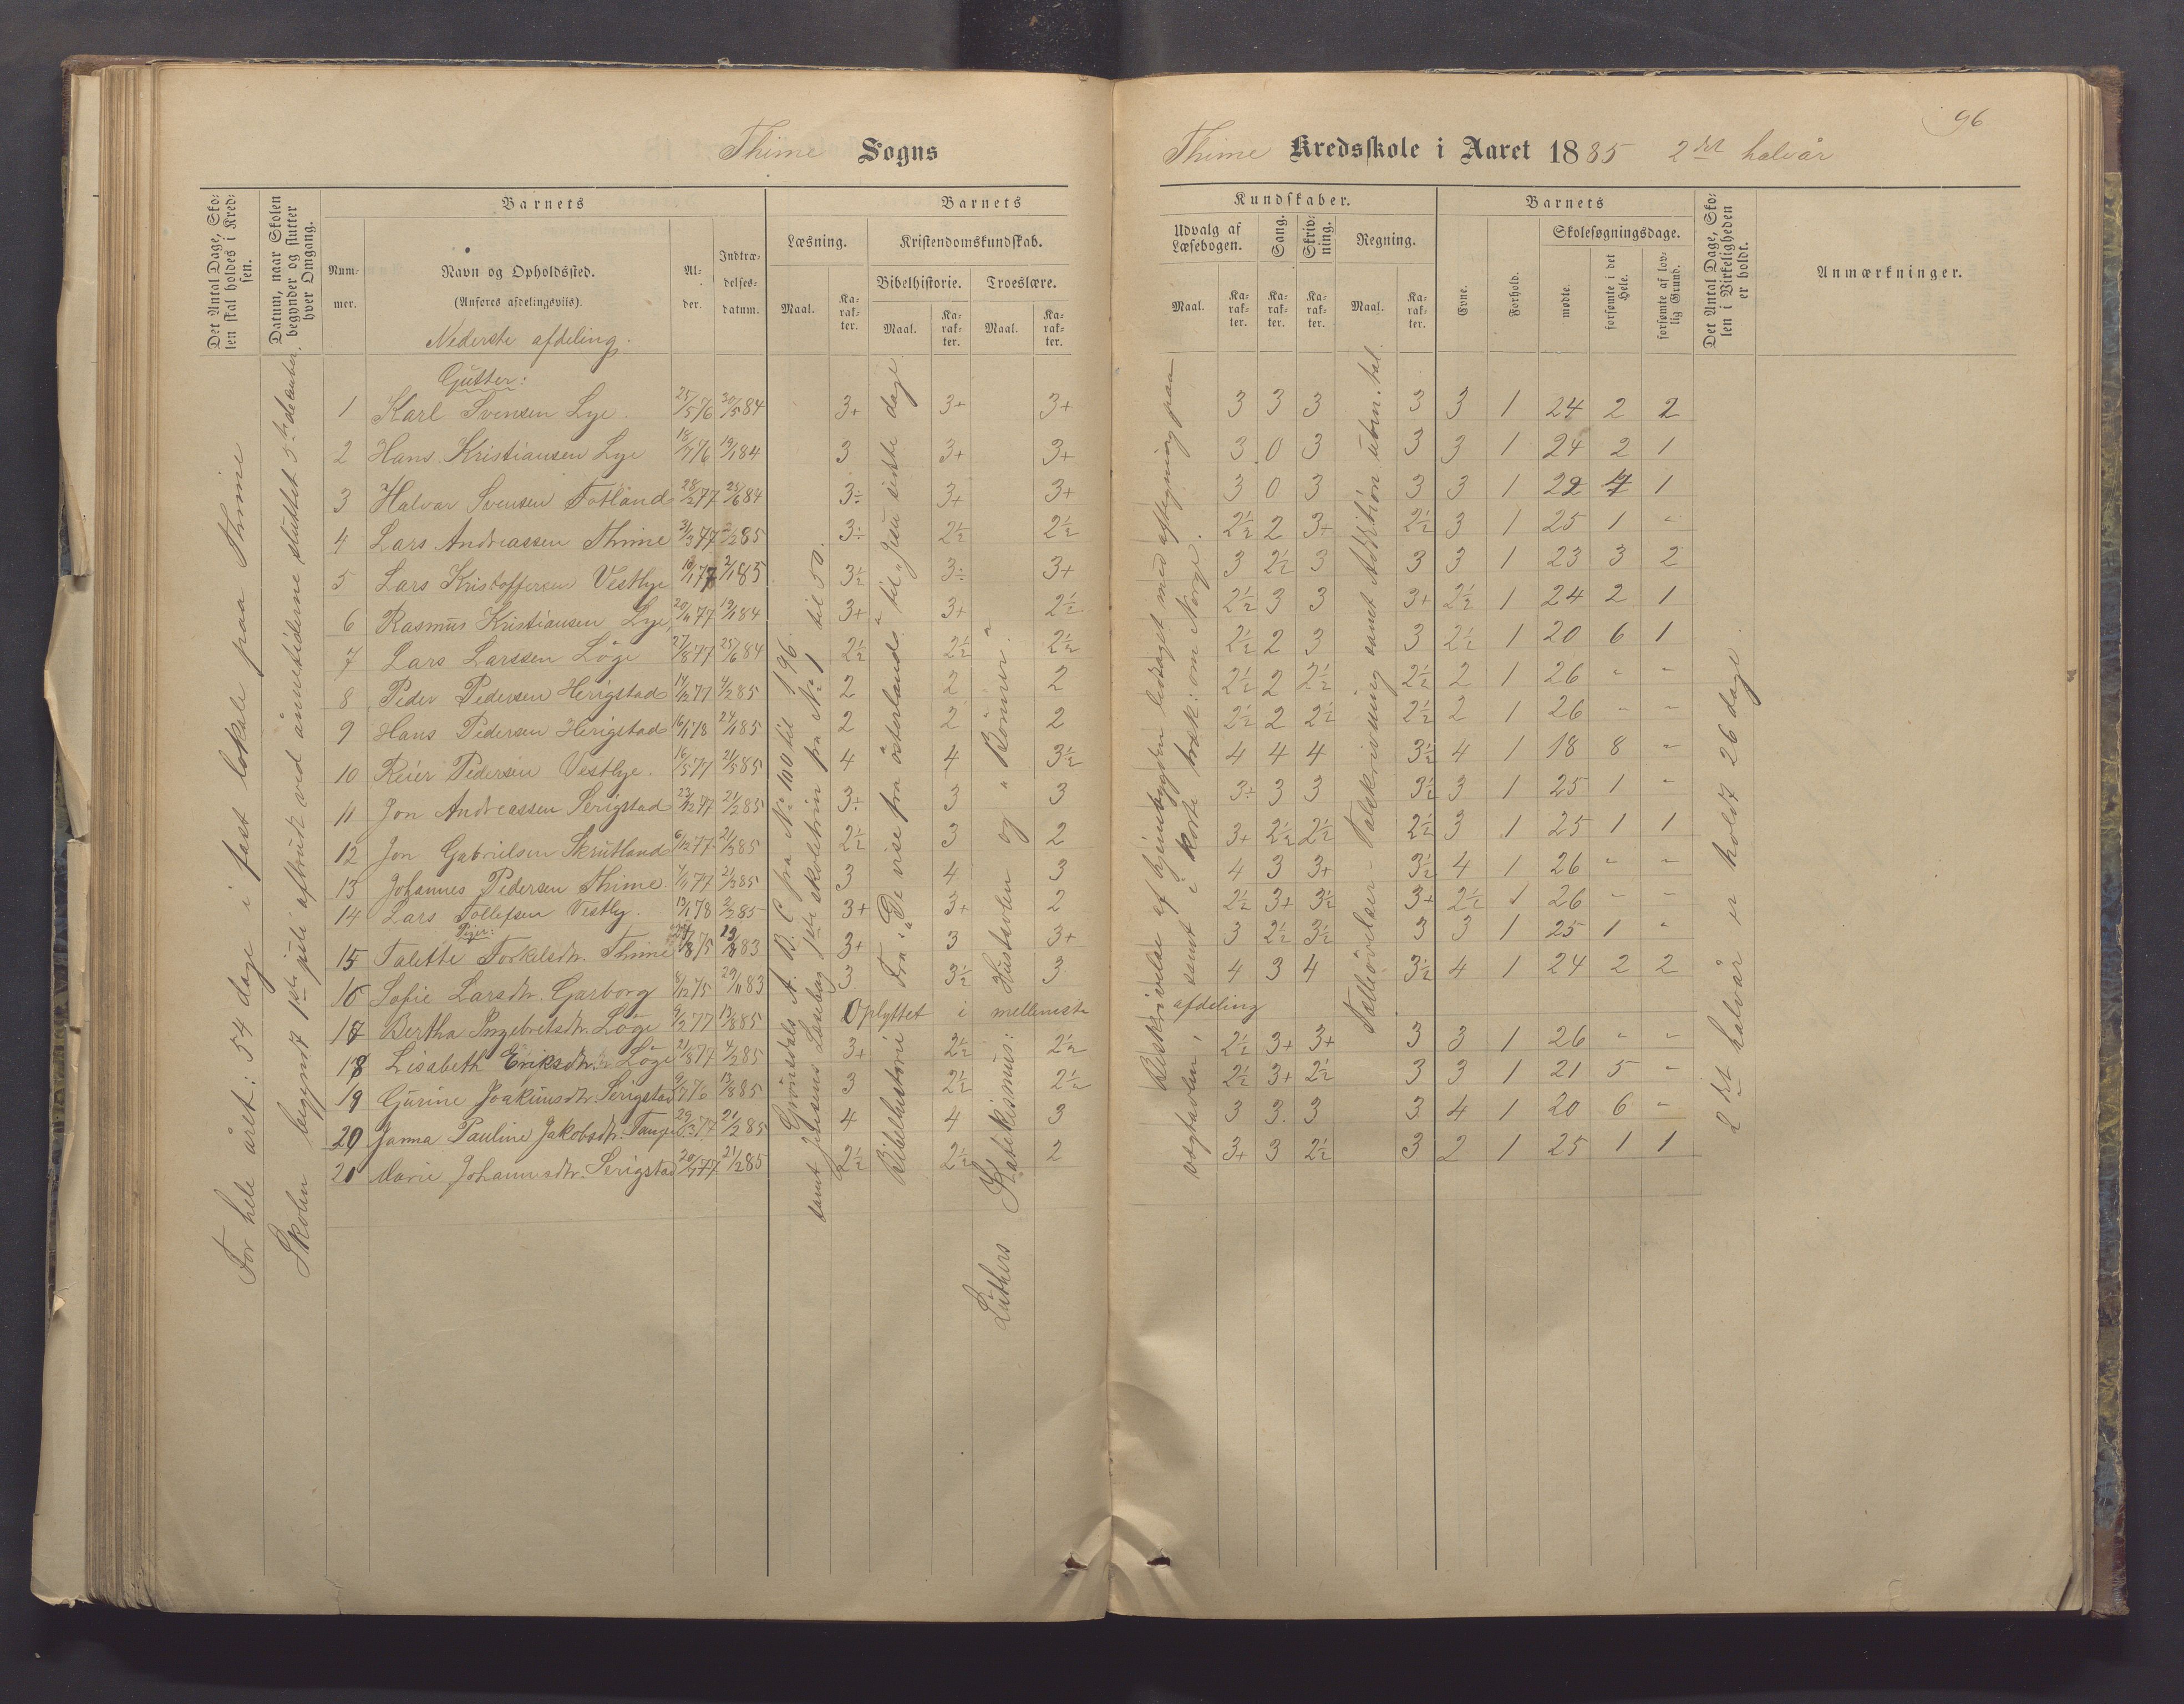 96
Thime Sogns Thime Kredsskole i Aaret 1885 2det halvår
Det Antal Dage, Skolen skal holdes i Kredsen.
Datum, naar Skolen begynder og slutter hver Omgang.
Barnets
Nummer.
Navn og Opholdssted.
(Anføres afdelingsviis).
Nederste afdeling.
Alder.
Indtrædelsesdatum.
Barnets Kundskaber.
Læsning.
Maal. Karakter.
Kristendomskundskab.
Bibelhistorie. Troeslære.
Maal. Karakter. Maal. Karakter.
Udvalg af Læsebogen. Sang. Skrivning. Regning.
Maal. Karakter. Karakter. Karakter. Maal. Karakter.
Barnets
Evne. Forhold.
Skolesøgningsdage.
mødte. forsømte i det Hele. forsømte af lovlig Grund.
Det Antal Dage, Skolen i Virkeligheden er holdt.
Anmærkninger.
For hele året: 54 dage i fast lokale paa Thime
Skolen begyndt 1ste juli afbrudt ved ånnetiderne sluttet 5te decanber.
A. B. C fra No 100 til 196
samt Jensens Læsebog 1ste skoletrin fra No 1 til 50.
Bibelhistorie Fra: "De vise fra österland" til "Jesu sidste dage
Luthers Katekismus: Hustavlen og "Bönner".
Beskrivelse af hjembygden ledsaget med aftegning paa
vægtavlen, samt i korte træk: om Norge.
Tælleövelser - Talskrivning samt Addition uben. tal.
2det halvår er holdt 26 dage.
Gutter:
1 Karl Svensen Lye. 25/5 76 20/5 84 3+ 3+ 3+ 3 3 3 3 3 1 24 2 2
2 Hans Kristiansen Lye 18/7 76 19/1 84 3 3+ 3+ 3 0 3 3 3 1 24 2 1
3 Halvar Svensen Fotland 28/2 77 25/6 84 3÷ 3+ 3+ 3 0 3 3 3 1 22 4 1
4 Lars Andreassen Thime 31/3 77 2/2 85 3÷ 2½ 2½ 2½ 2 3+ 2½ 3 1 25 1 -
5 Lars Kristoffersen Vestlye 77 2/1 85 3½ 3÷ 3+ 3 2½ 3 3 3 1 23 3 2
6 Rasmus Kristiansen Lye 77 19/1 84 3+ 3+ 2½ 2½ 3 3 3+ 2½ 1 24 2 1
7 Lars Larssen Löge 27/8 77 25/6 84 2½ 2½ 2½ 2½ 2 3 3 2½ 1 20 6 1
8 Peder Pedersen Herigstad 14/12 77 4/2 85 2 2 2 2½ 2 2½ 2½ 2 1 26 - -
9 Hans Pedersen Herigstad 16/1 78 24/1 85 2 2 2 2½ 2 2½ 2½ 2 1 26 - -
10 Reier Pedersen Vestlye. 16/5 77 21/5 85 4 4 3½ 4 4 4 3½ 4 1 18 8 -
11 Jon Andreassen Serigstad 23/12 77 21/2 85 3÷ 3 3 3÷ 3 3 3½ 3 1 25 1 -
12 Jon Gabrielsen Skrutland 6/12 77 21/2 85 2½ 3 2 3+ 2½ 2½ 2½ 3 1 25 1 1
13 Johannes Pedersen Thime. 7/11 77 21/2 85 3 4 3 4 3 3+ 3½ 4 1 26 - -
14 Lars Tollefsen Vestly. 13/1 78 2/2 85 3+ 3+ 2 2½ 3+ 3½ 3+ 2½ 1 26 - -
Piger:
15 Talette Torkelsdtr. Thime 75 83 3+ 3 3+ 3 2½ 3½ 3 3 1 25 1 -
16 Sofie Larsdtr. Garborg 8/12 75 29/11 83 3 3½ 3 4 3 4 3½ 4 1 24 2 2
17 Bertha Ingebretsdtr. Löge 9/2 77 13/8 85 Oplyttet i mellemste afdeling
18 Lisabeth Eriksdtr. Löge 21/8 77 4/2 85 3+ 2½ 2½ 2½ 3+ 3+ 3 3 1 26 - -
19 Gurine Joakimsdtr. Serigstad 9/7 76 13/8 85 3 2½ 2½ 2½ 3+ 2½ 3 3 1 21 5 -
20 Janna Pauline Jakobsdtr. Tange 29/3 77 21/2 85 4 4 3 3 3. 3 3 4 1 20 6 -
21 Marie Johannesdtr. Serigstad 20/7 77 21/2 85 2½ 2½ 2 3+ 3 2½ 3 2 1 25 1 1